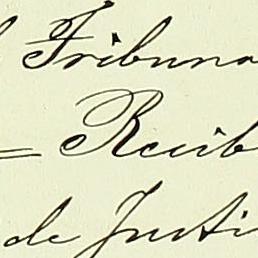 l Tribuna
= Recib
de Justi